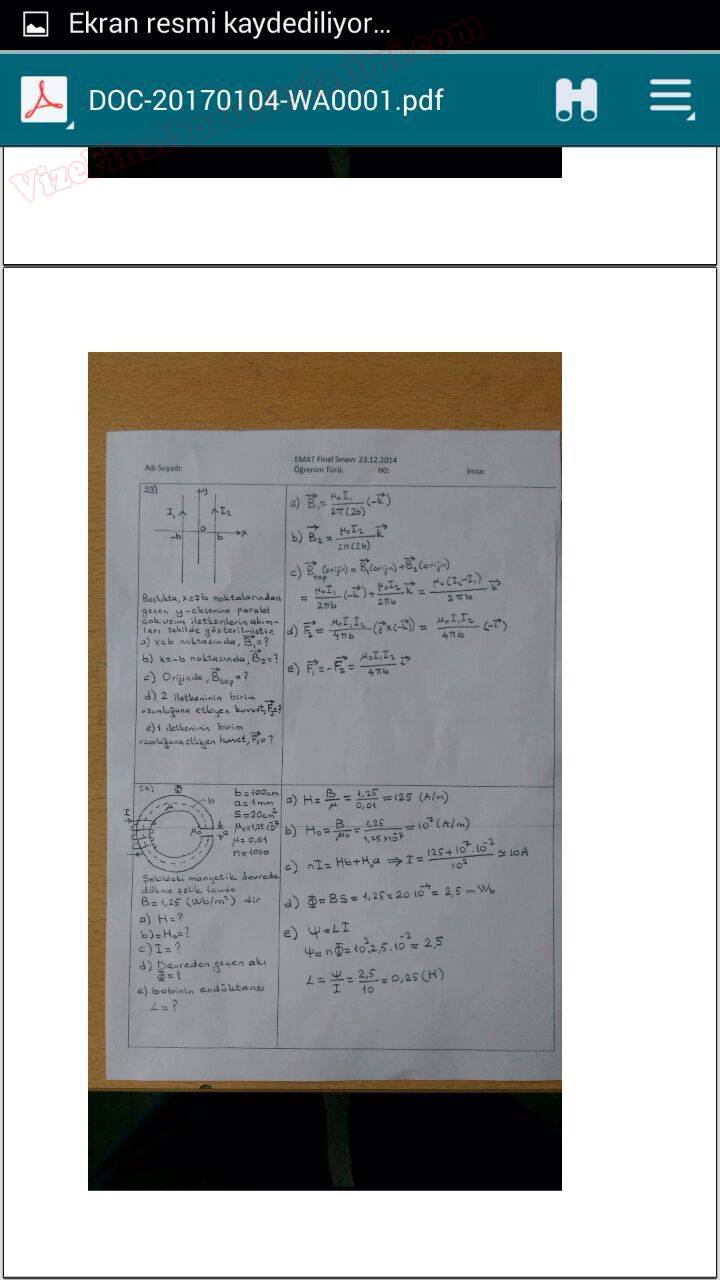 Ekran resmi kaydediliyor...
DOC-20170104-WA0001.pdf
EMAT Final Sınavı 23.12.2014
Adı Soyadı: Öğrenim Türü: NO: İmza:
S3)
y
I₁ I₂
-b 0 b x
Boşlukta, x=∓b noktalarından
geçen y-eksenine paralel
çok uzun iletkenlerin akım-
ları şekilde gösterilmiştir.
a) x=b noktasında, B⃗₁=?
b) x=-b noktasında, B⃗₂=?
c) Orijinde, B⃗top=?
d) 2 iletkeninin birim
uzunluğuna etkiyen kuvvet, F⃗₂=?
e) 1 iletkeninin birim
uzunluğuna etkiyen kuvvet, F⃗₁=?
a) B⃗₁ = μ₀I₁/2π(2b) (-k⃗)
b) B⃗₂ = μ₀I₂/2π(2b) k⃗
c) B⃗top(orijin) = B⃗₁(orijin)+B⃗₂(orijin)
= μ₀I₁/2πb (-k⃗) + μ₀I₂/2πb k⃗ = μ₀(I₂-I₁)/2πb k⃗
d) F⃗₂ = μ₀I₁I₂/4πb (j⃗x(-k⃗)) = μ₀I₁I₂/4πb (-i⃗)
e) F⃗₁ = -F⃗₂ = μ₀I₁I₂/4πb i⃗
S4)
Φ
I μ b μ₀ a
b=100cm
a=1mm
S=20cm²
μ₀=1,25 10⁻⁷
μ=0,01
n=1000
Şekildeki manyetik devrede
dökme çelik içinde
B=1,25 (Wb/m²) dir
a) H=?
b)=H₀=?
c) I=?
d) Devreden geçen akı
Φ=?
e) bobinin endüktansı
L=?
a) H = B/μ = 1,25/0,01 = 125 (A/m)
b) H₀ = B/μ₀ = 1,25/1,25x10⁻⁷ = 10⁷ (A/m)
c) nI = Hb+H₀a ⇒ I = 125+10⁷.10⁻³/10³ ≃ 10A
d) Φ = BS = 1,25x20 10⁻⁴ = 2,5 mWb
e) Ψ = LI
Ψ = nΦ = 10³.2,5.10⁻³ = 2,5
L = Ψ/I = 2,5/10 = 0,25 (H)